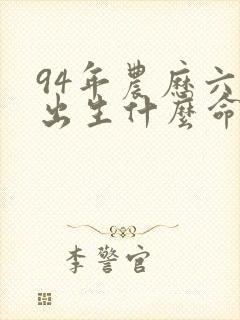 94年農曆六
出生什麼命
李警官